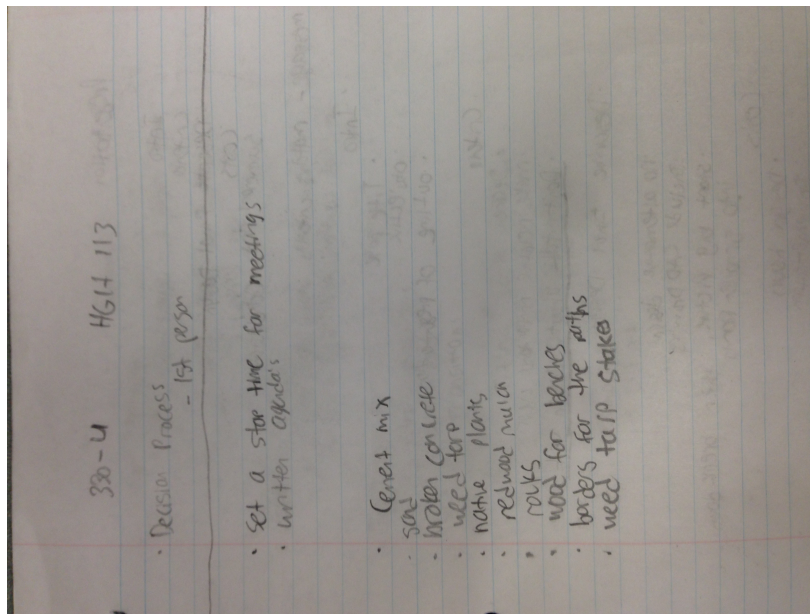 330-4 HGH 113
· Decision Process
- 1st person
· Set a stop time for meetings
· written agenda's
· Cement mix
· sand
· broken concrete
· weed tarp
· native plants
· redwood mulch
· rocks
· wood for benches
· borders for the paths
· weed tarp stakes